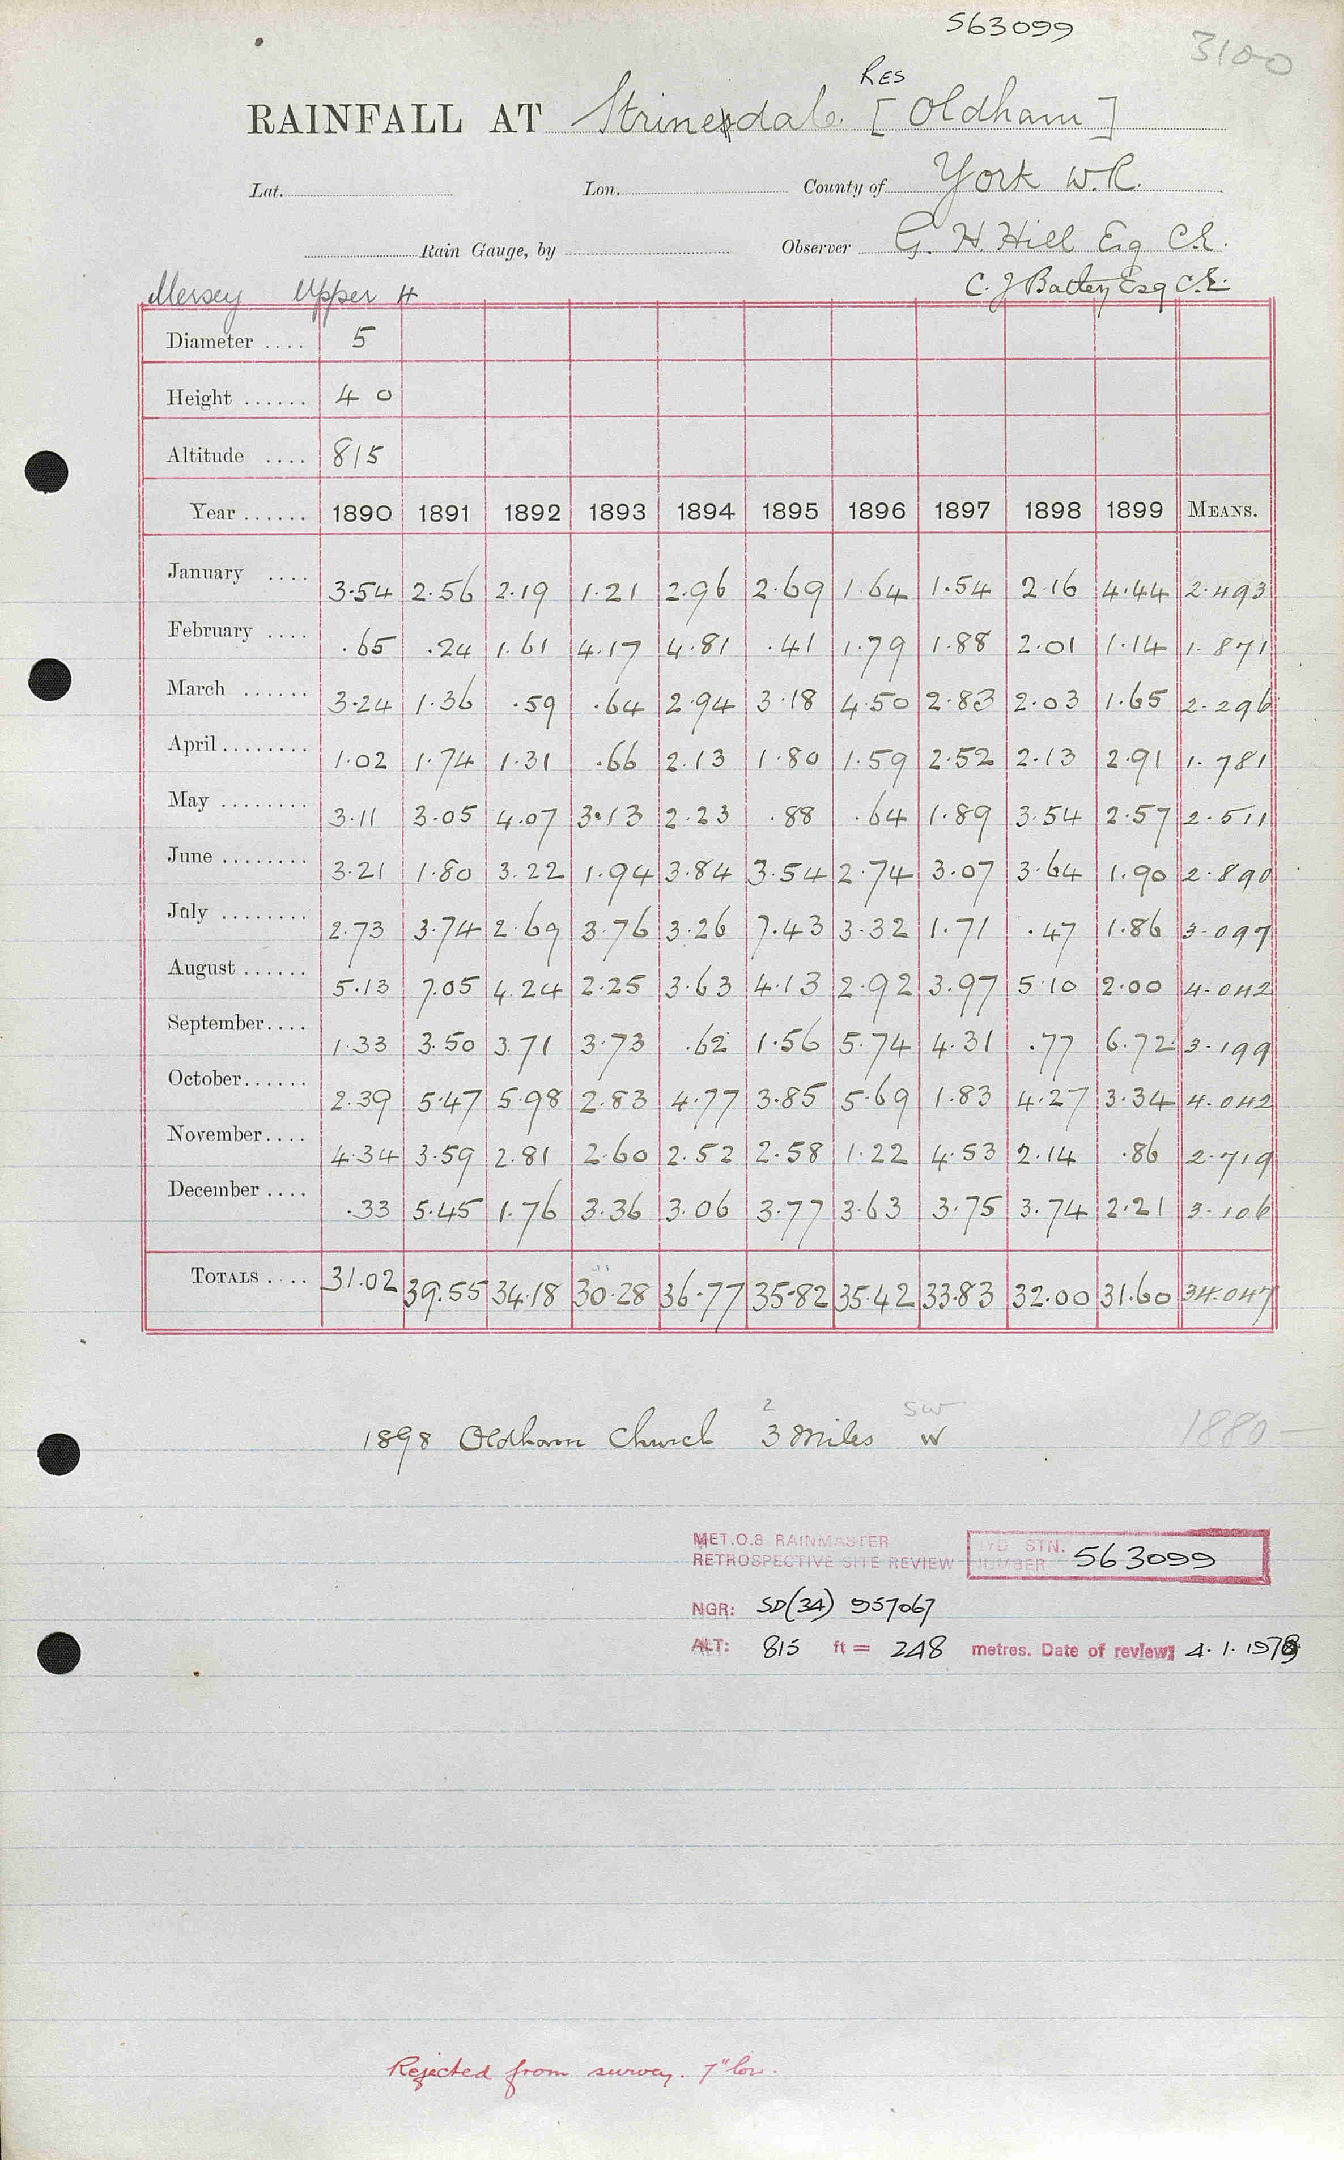 563099
3100
Res
RAINFALL AT Strinesdale [Oldham]
Lat. Lon. County of York W.R.
Rain Gauge, by Observer G. H. Hill Esq C.E.
Mersey Upper H C. J Batley Esq C.E.
Diameter .... 5
Height ...... 4 0
Altitude .... 815
Year ...... 1890 1891 1892 1893 1894 1895 1896 1897 1898 1899 MEANS.
January .... 3.54 2.56 2.19 1.21 2.96 2.69 1.64 1.54 2.16 4.44 2.493
February .... .65 .24 1.61 4.17 4.81 .41 1.79 1.88 2.01 1.14 1.871
March ...... 3.24 1.36 .59 .64 2.94 3.18 4.50 2.83 2.03 1.65 2.296
April ........ 1.02 1.74 1.31 .66 2.13 1.80 1.59 2.52 2.13 2.91 1.781
May ........ 3.11 3.05 4.07 3.13 2.23 .88 .64 1.89 3.54 2.57 2.511
June ........ 3.21 1.80 3.22 1.94 3.84 3.54 2.74 3.07 3.64 1.90 2.890
July ........ 2.73 3.74 2.69 3.76 3.26 7.43 3.32 1.71 .47 1.86 3.097
August ...... 5.13 7.05 4.24 2.25 3.63 4.13 2.92 3.97 5.10 2.00 4.042
September.... 1.33 3.50 3.71 3.73 .62 1.56 5.74 4.31 .77 6.72 3.199
October...... 2.39 5.47 5.98 2.83 4.77 3.85 5.69 1.83 4.27 3.34 4.042
November.... 4.34 3.59 2.81 2.60 2.52 2.58 1.22 4.53 2.14 .86 2.719
December .... .33 5.45 1.76 3.36 3.06 3.77 3.63 3.75 3.74 2.21 3.106
TOTALS .... 31.02 39.55 34.18 30.28 36.77 35.82 35.42 33.83 32.00 31.60 34.047
2 SW
1898 Oldham Church 3 Miles W 1880 —
MET.O.8 RAINMASTER
RETROSPECTIVE SITE REVIEW
STN. NUMBER 563099
NGR: SD(34) 957067
ALT: 815 ft = 248 metres. Date of review: 4.1.1979
Rejected from survey. 7" low.